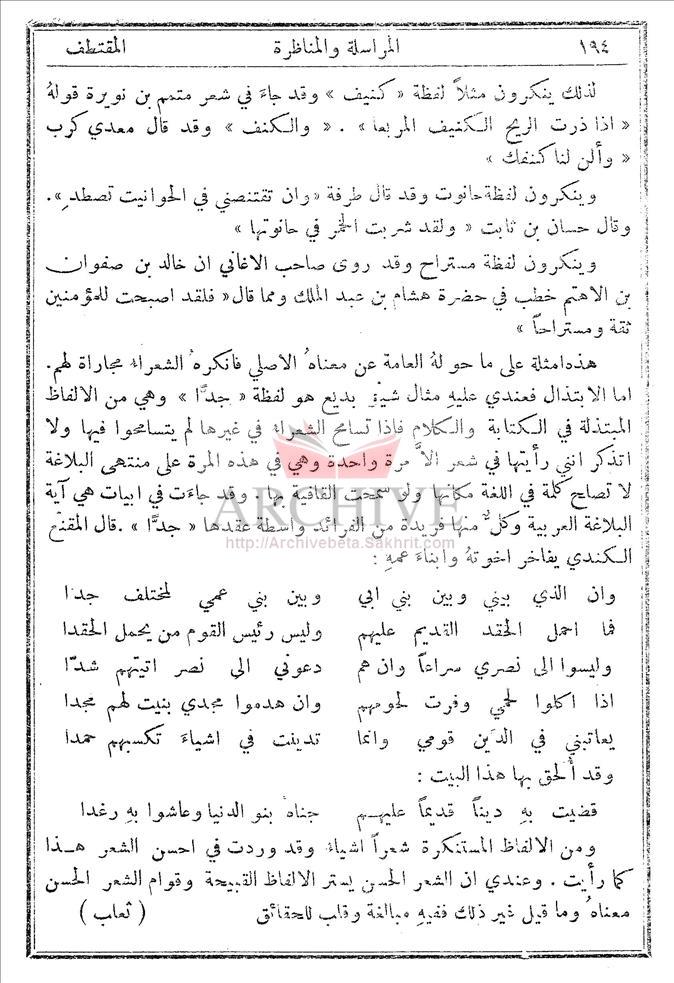 ١٩٤ المراسلة والمناظرة المقتطف
لذلك ينكرون مثلاً لفظة « كنيف » وقد جاءَ في شعر متمم بن نويرة قولهُ
« اذا ذرت الريح الكنيف المربعا » . « والكنف » وقد قال معدي كرب
« وألن لنا كنفك »
وينكرون لفظة حانوت وقد قال طرفة « وان تقتنصني في الحوانيت تصطدِ ».
وقال حسان بن ثابت « ولقد شربت الخمر في حانوتها »
وينكرون لفظة مستراح وقد روى صاحب الاغاني ان خالد بن صفوان
بن الاهتم خطب في حضرة هشام بن عبد الملك ومما قال « فلقد اصبحت للمؤمنين
ثقة ومستراحاً »
هذه امثلة على ما حولهُ العامة عن معناهُ الاصلي فانكرهُ الشعراءُ مجاراة لهم.
اما الابتذال فعندي عليهِ مثال شيّق بديع هو لفظة « جدًّا » وهي من الالفاظ
المبتذلة في الكتابة والكلام فاذا تسامح الشعراءُ في غيرها لم يتسامحوا فيها ولا
اتذكر انني رأيتها في شعر الاَّ مرة واحدة وهي في هذه المرة على منتهى البلاغة
لا تصلح كلمة في اللغة مكانها ولو سمحت القافية بها . وقد جاءَت في ابيات هي آية
البلاغة العربية وكلٌّ منها فريدة من الفرائد واسطة عقدها « جدًّا » .قال المقنع
الكندي يفاخر اخوتهُ وابناءَ عمهِ :
وان الذي بيني وبين بني ابي وبين بني عمي لمختلف جدا
فما احمل الحقد القديم عليهم وليس رئيس القوم من يحمل الحقدا
وليسوا الى نصري سراعاً وان هم دعوني الى نصر اتيتهم شدّا
اذا اكلوا لحمي وفرت لحومهم وان هدموا مجدي بنيت لهم مجدا
يعاتبني في الدّين قومي وانما تدينت في اشياءَ تكسبهم حمدا
وقد أُلحق بها هذا البيت :
قضيت بهِ ديناً قديماً عليهم جناهُ بنو الدنيا وعاشوا بهِ رغدا
ومن الالفاظ المستنكرة شعراً اشياءُ وقد وردت في احسن الشعر هذا
كما رأيت . وعندي ان الشعر الحسن يستر الالفاظ القبيحة وقوام الشعر الحسن
معناهُ وما قيل غير ذلك ففيهِ مبالغة وقلب للحقائق ( ثعلب )
ARCHIVE
http://Archivebeta.Sakhrit.com